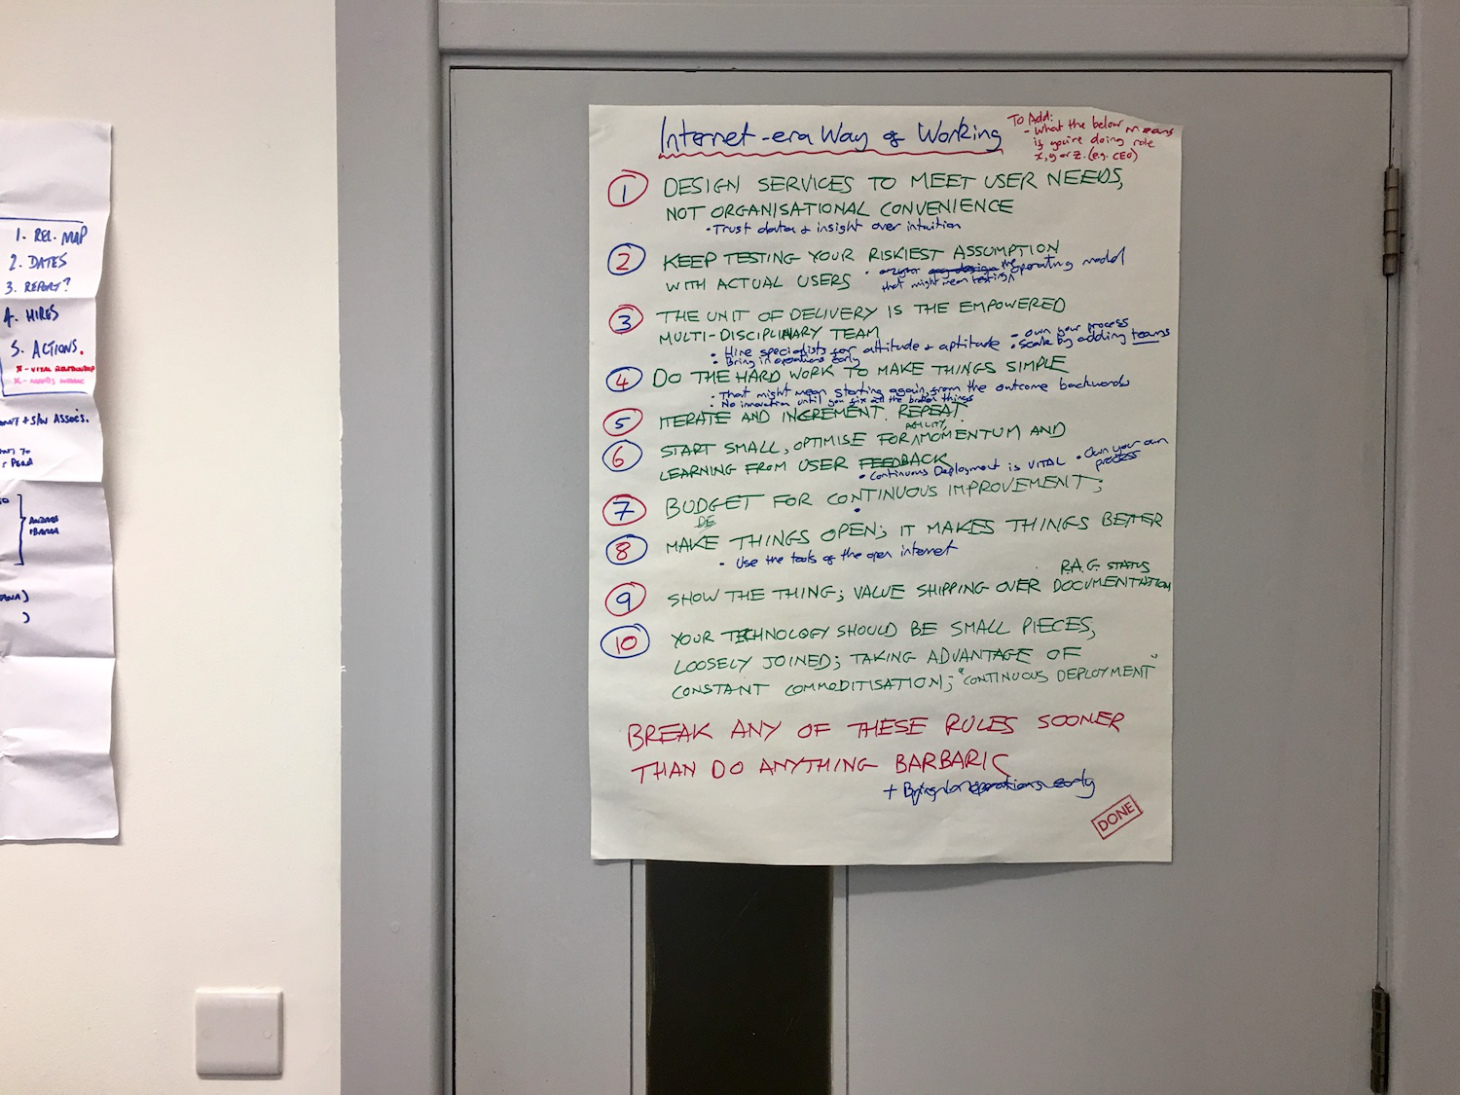 1. REL. MAP
2. DATES
3. REPORT?
4. HIRES
5. ACTIONS.
+ S/W ASSOCS.
Internet-era Way of Working
To Add:
- What the below means
if you're doing role
x, y or z. (e.g. CEO)
1 DESIGN SERVICES TO MEET USER NEEDS,
NOT ORGANISATIONAL CONVENIENCE
• Trust data + insight over intuition
2 KEEP TESTING YOUR RISKIEST ASSUMPTION
WITH ACTUAL USERS
• the operating model
that might mean testing
3 THE UNIT OF DELIVERY IS THE EMPOWERED
MULTI-DISCIPLINARY TEAM
- own your process
• Hire specialists for attitude + aptitude • Scale by adding teams
• Bring in operations early
4 DO THE HARD WORK TO MAKE THINGS SIMPLE
• That might mean starting again, from the outcome backwards
• No innovation until you fix all the broken things
5 ITERATE AND INCREMENT. REPEAT.
AGILITY,
6 START SMALL, OPTIMISE FOR MOMENTUM AND
LEARNING FROM USER FEEDBACK
• Continuous Deployment is VITAL • Own your own
process
7 BUDGET FOR CONTINUOUS IMPROVEMENT;
DE
8 MAKE THINGS OPEN; IT MAKES THINGS BETTER
• Use the tools of the open internet
R.A.G. STATUS
9 SHOW THE THING; VALUE SHIPPING OVER DOCUMENTATION
10 YOUR TECHNOLOGY SHOULD BE SMALL PIECES,
LOOSELY JOINED; TAKING ADVANTAGE OF
CONSTANT COMMODITISATION; "CONTINUOUS DEPLOYMENT"
BREAK ANY OF THESE RULES SOONER
THAN DO ANYTHING BARBARIC
+ Bring in operations early
DONE